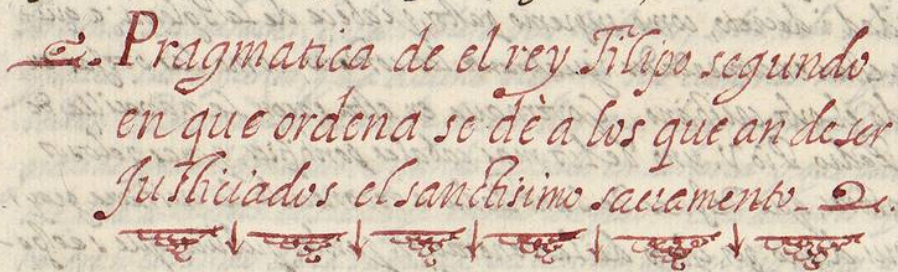 Pragmatica de el rey Filipo segundo
en que ordena se dè a los que an de ser
Justiciados el sanctisimo sacramento